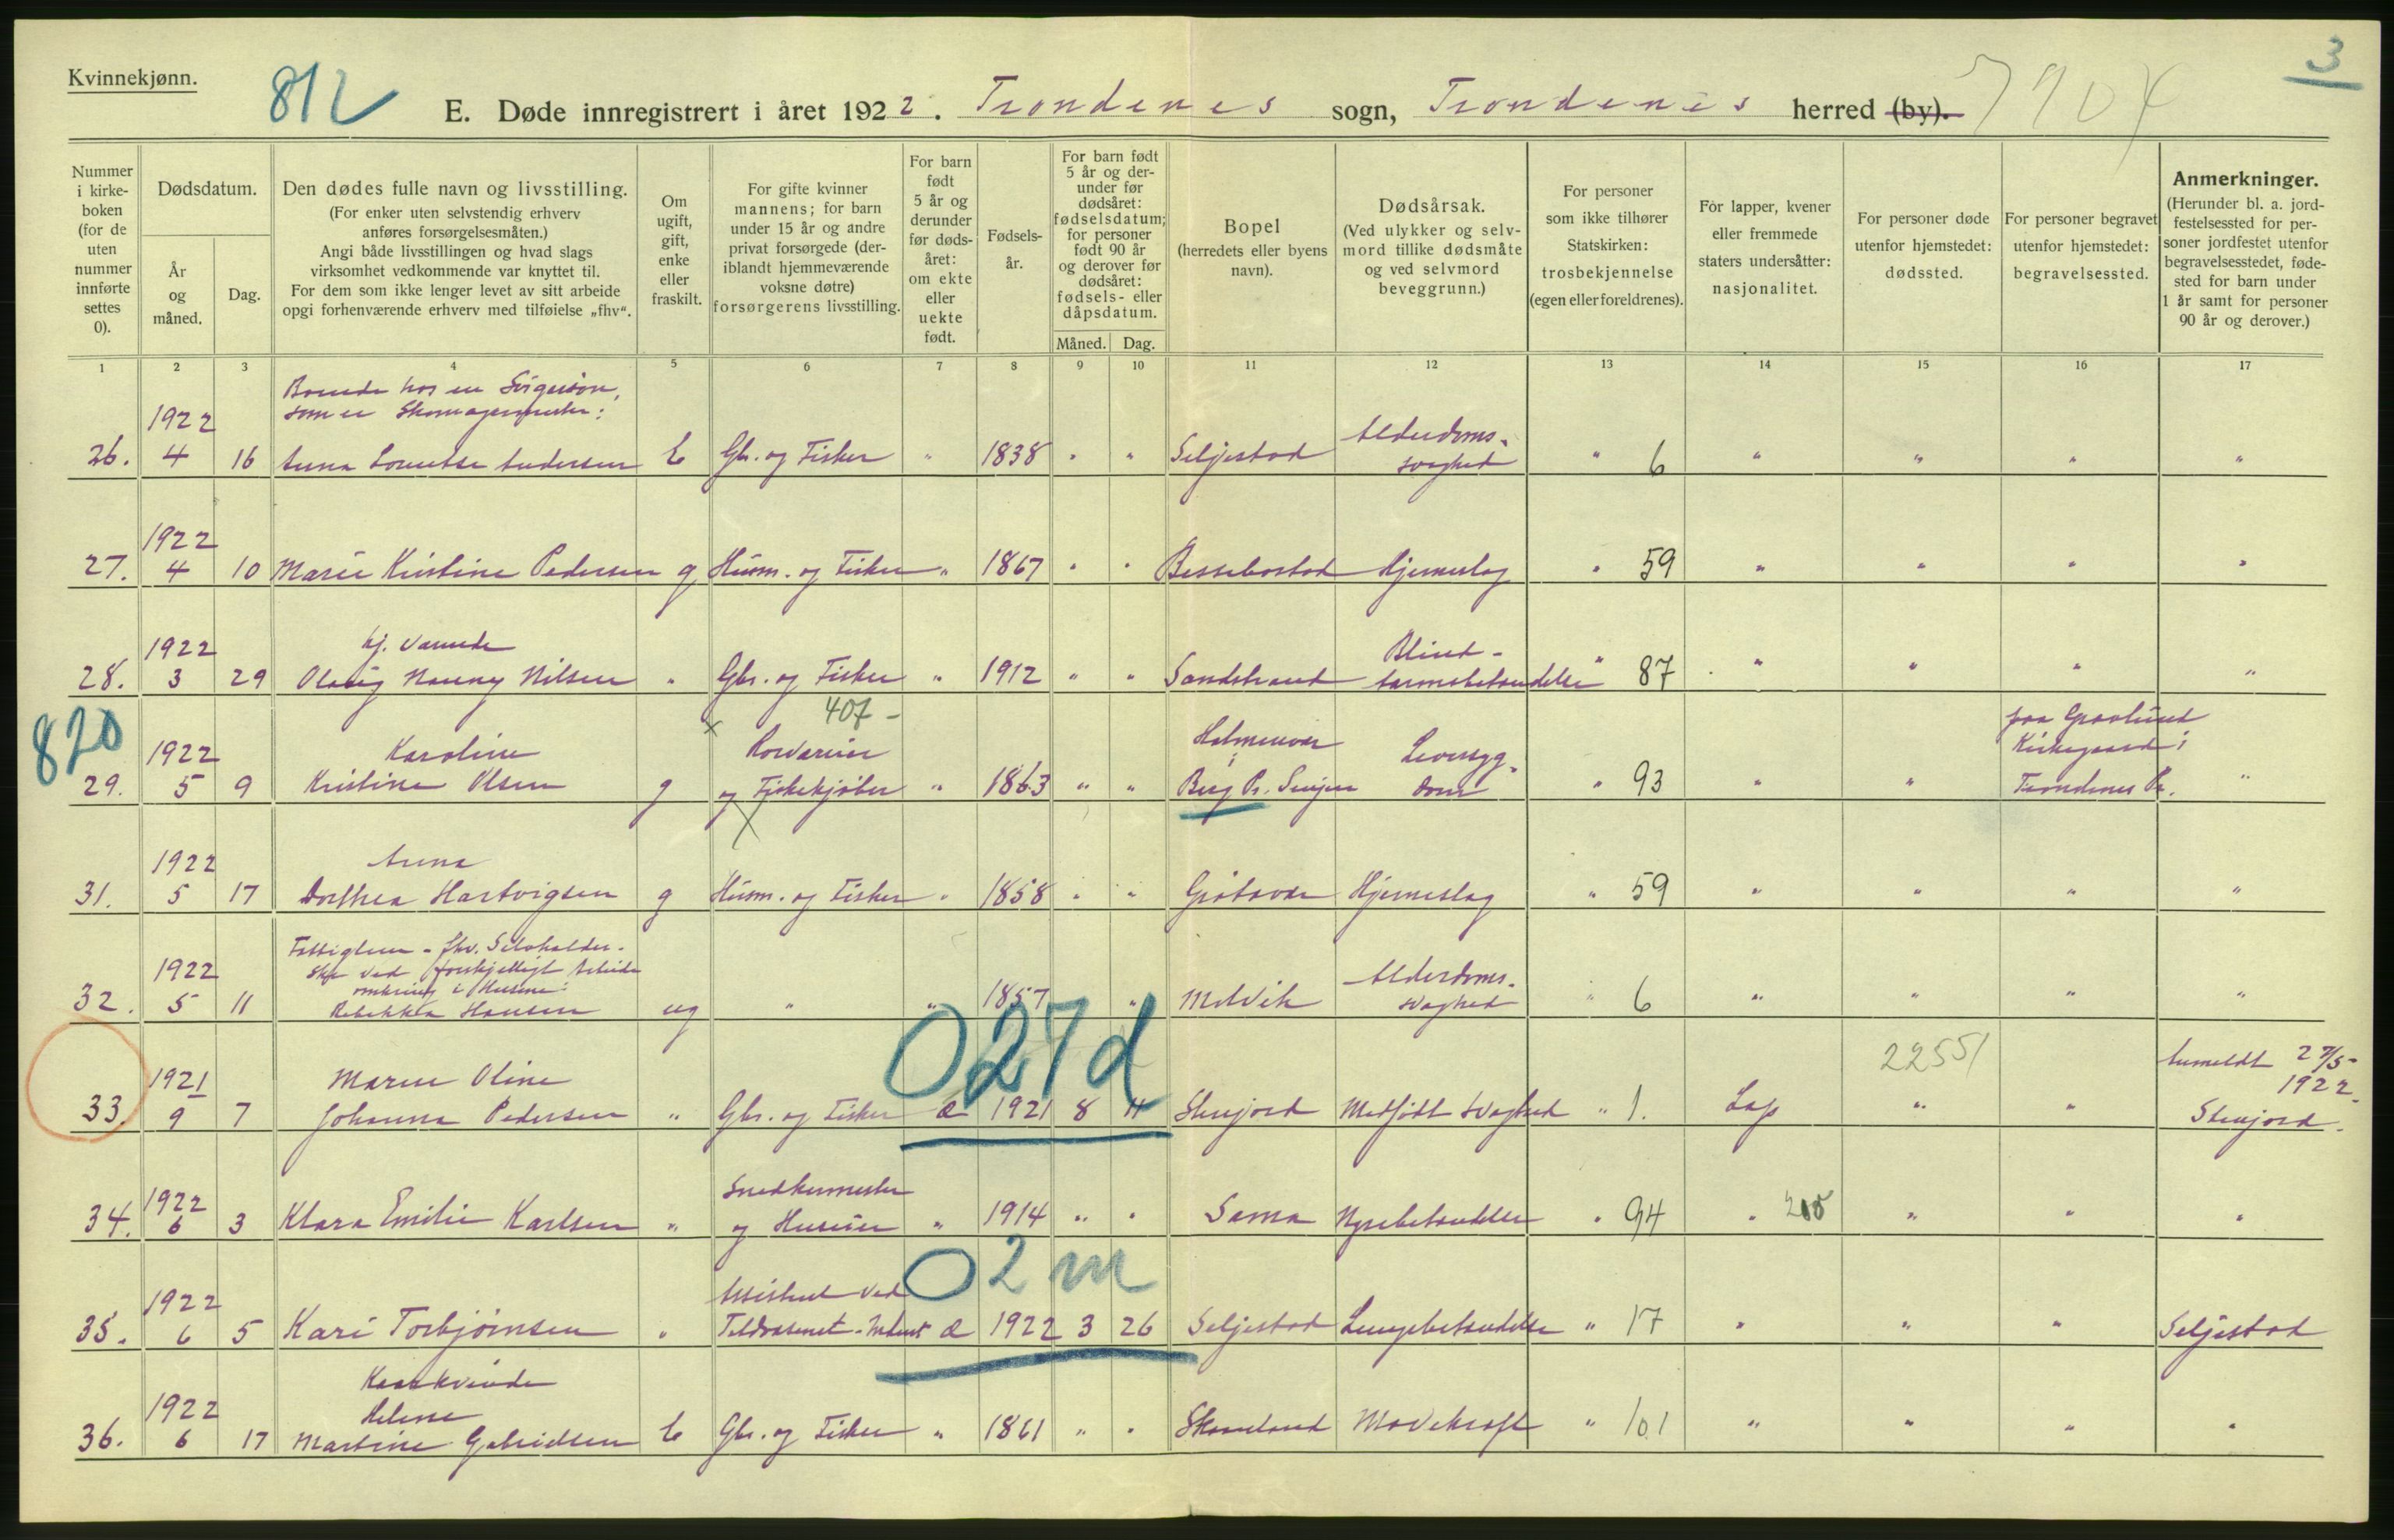 Kvinnekjønn.
812
3
E. Døde innregistrert i året 1922. Trondenes sogn, Trondenes herred (by).
Nummer i kirke-boken (for de uten nummer innførte settes 0).
Dødsdatum.
År og måned.
Dag.
Den dødes fulle navn og livsstilling.
(For enker uten selvstendig erhverv anføres forsørgelsesmåten.)
Angi både livsstillingen og hvad slags virksomhet vedkommende var knyttet til.
For dem som ikke lenger levet av sitt arbeide opgi forhenværende erhverv med tilføielse „fhv“.
Om ugift, gift, enke eller fraskilt.
For gifte kvinner mannens; for barn under 15 år og andre privat forsørgede (der-iblandt hjemmeværende voksne døtre) forsørgerens livsstilling.
For barn født 5 år og derunder før døds-året: om ekte eller uekte født.
Fødsels-år.
For barn født 5 år og der-under før dødsåret: fødselsdatum; for personer født 90 år og derover før dødsåret: fødsels- eller dåpsdatum.
Måned.
Dag.
Bopel
(herredets eller byens navn).
Dødsårsak.
(Ved ulykker og selv-mord tillike dødsmåte og ved selvmord beveggrunn.)
For personer som ikke tilhører Statskirken: trosbekjennelse (egen eller foreldrenes).
For lapper, kvener eller fremmede staters undersåtter: nasjonalitet.
For personer døde utenfor hjemstedet: dødssted.
For personer begravet utenfor hjemstedet: begravelsessted.
Anmerkninger.
(Herunder bl. a. jord-festelsessted for per-soner jordfestet utenfor begravelsesstedet, føde-sted for barn under 1 år samt for personer 90 år og derover.)
1 2 3 4 5 6 7 8 9 10 11 12 13 14 15 16 17
Boende hos en Svigersøn,
som er Skomagermester:
26. 1922 4 16 Anna Lovise Andersen E Gbr. og Fisker " 1838 " " Seljestad Alderdoms-svaghed " 6 " " " "
27. 1922 4 10 Marie Kristine Pedersen g Husm. og Fisker " 1867 " " Bessebostad Hjerneslag " 59 " " " "
hj. værende
28. 1922 3 29 Olaug Nanny Nilsen " Gbr. og Fisker " 1912 " " Sandstrand Blind-tarmsbetændelse " 87 " " " "
820
407 -
29. 1922 5 9 Karoline Kristine Olsen g og Fiskekjøber " 1863 " " Berg Pr. Senjen Leversyg-dom " 93 " " paa Kirkegaard i Trondenes Pr. "
31. 1922 5 17 Anna Dorthea Hartvigsen g Husm. og Fisker " 1858 " " Grøtavær Hjerneslag " 59 " " " "
Fattiglem - fhv. Selvholder-
ske ved forskjelligt Arbeide
omkring i Husene:
32. 1922 5 11 Rebekka Hansen ug " " 1857 " Melvik Alderdoms-svaghed " 6 " " " "
027d
22551
33. 1921 9 7 Maren Oline Johanna Pedersen " Gbr. og Fisker æ 1921 8 Stenjord Medfødt Svaghed " 1. Lap " " Anmeldt 27/5-1922. Stenjord.
34. 1922 6 3 Klara Emilie Karlsen " Snedkermester og Huseier " 1914 " " Sama Nyrebetændelse " 94 " " " "
02 m
35. 1922 6 5 Kari Torbjørnsen " Assistent ved æ 1922 3 26 Seljestad Lungebetændelse " 17 " " " Seljestad
Kaarkvinde
36. 1922 6 17 Helene Martine Gabrielsen E Gbr. og Fisker " 1861 " " Mavekræft " 101 " " " "